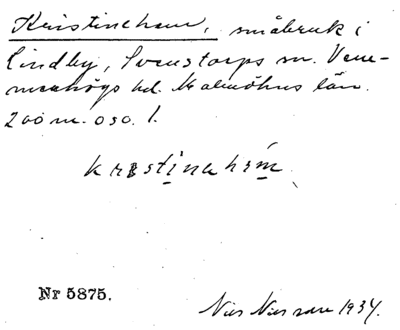 Kristineham, småbruk i
Lindby, Svenstorps sn. Vem-
menhögs hd. Malmöhus län.
200 m. oso. 1.
krɪstinəhɛm
Nr 5875.
Nils Nilsson 1934.